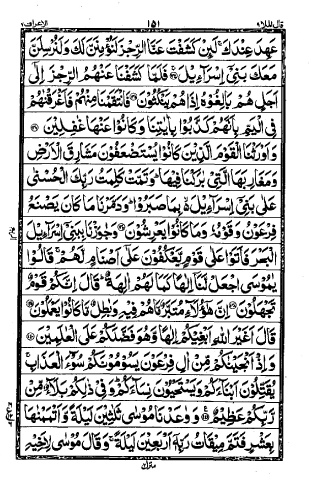 قال الملا ٩ ١٥١ الاعراف ٧
عَهِدَ عِنْدَكَ لَئِنْ كَشَفْتَ عَنَّا الرِّجْزَ لَنُؤْمِنَنَّ لَكَ وَلَنُرْسِلَنَّ
مَعَكَ بَنِيْٓ اِسْرَآءِيْلَ فَلَمَّا كَشَفْنَا عَنْهُمُ الرِّجْزَ اِلٰٓى
اَجَلٍ هُمْ بٰلِغُوْهُ اِذَا هُمْ يَنْكُثُوْنَ فَانْتَقَمْنَا مِنْهُمْ فَاَغْرَقْنٰهُمْ
فِي الْيَمِّ بِاَنَّهُمْ كَذَّبُوْا بِاٰيٰتِنَا وَكَانُوْا عَنْهَا غٰفِلِيْنَ
وَاَوْرَثْنَا الْقَوْمَ الَّذِيْنَ كَانُوْا يُسْتَضْعَفُوْنَ مَشَارِقَ الْاَرْضِ
وَمَغَارِبَهَا الَّتِيْ بٰرَكْنَا فِيْهَا وَتَمَّتْ كَلِمَتُ رَبِّكَ الْحُسْنٰى
عَلٰى بَنِيْٓ اِسْرَآءِيْلَ بِمَا صَبَرُوْا وَدَمَّرْنَا مَا كَانَ يَصْنَعُ
فِرْعَوْنُ وَقَوْمُهٗ وَمَا كَانُوْا يَعْرِشُوْنَ وَجٰوَزْنَا بِبَنِيْٓ اِسْرَآءِيْلَ
الْبَحْرَ فَاَتَوْا عَلٰى قَوْمٍ يَّعْكُفُوْنَ عَلٰٓى اَصْنَامٍ لَّهُمْ قَالُوْا
يٰمُوْسَى اجْعَلْ لَّنَآ اِلٰهًا كَمَا لَهُمْ اٰلِهَةٌ قَالَ اِنَّكُمْ قَوْمٌ
تَجْهَلُوْنَ اِنَّ هٰٓؤُلَآءِ مُتَبَّرٌ مَّا هُمْ فِيْهِ وَبٰطِلٌ مَّا كَانُوْا يَعْمَلُوْنَ
قَالَ اَغَيْرَ اللّٰهِ اَبْغِيْكُمْ اِلٰهًا وَّهُوَ فَضَّلَكُمْ عَلَى الْعٰلَمِيْنَ
وَاِذْ اَنْجَيْنٰكُمْ مِّنْ اٰلِ فِرْعَوْنَ يَسُوْمُوْنَكُمْ سُوْٓءَ الْعَذَابِ
يُقَتِّلُوْنَ اَبْنَآءَكُمْ وَيَسْتَحْيُوْنَ نِسَآءَكُمْ وَفِيْ ذٰلِكُمْ بَلَآءٌ مِّنْ
رَّبِّكُمْ عَظِيْمٌ وَوٰعَدْنَا مُوْسٰى ثَلٰثِيْنَ لَيْلَةً وَّاَتْمَمْنٰهَا
بِعَشْرٍ فَتَمَّ مِيْقَاتُ رَبِّهٖٓ اَرْبَعِيْنَ لَيْلَةً وَقَالَ مُوْسٰى لِاَخِيْهِ
منزل ٢